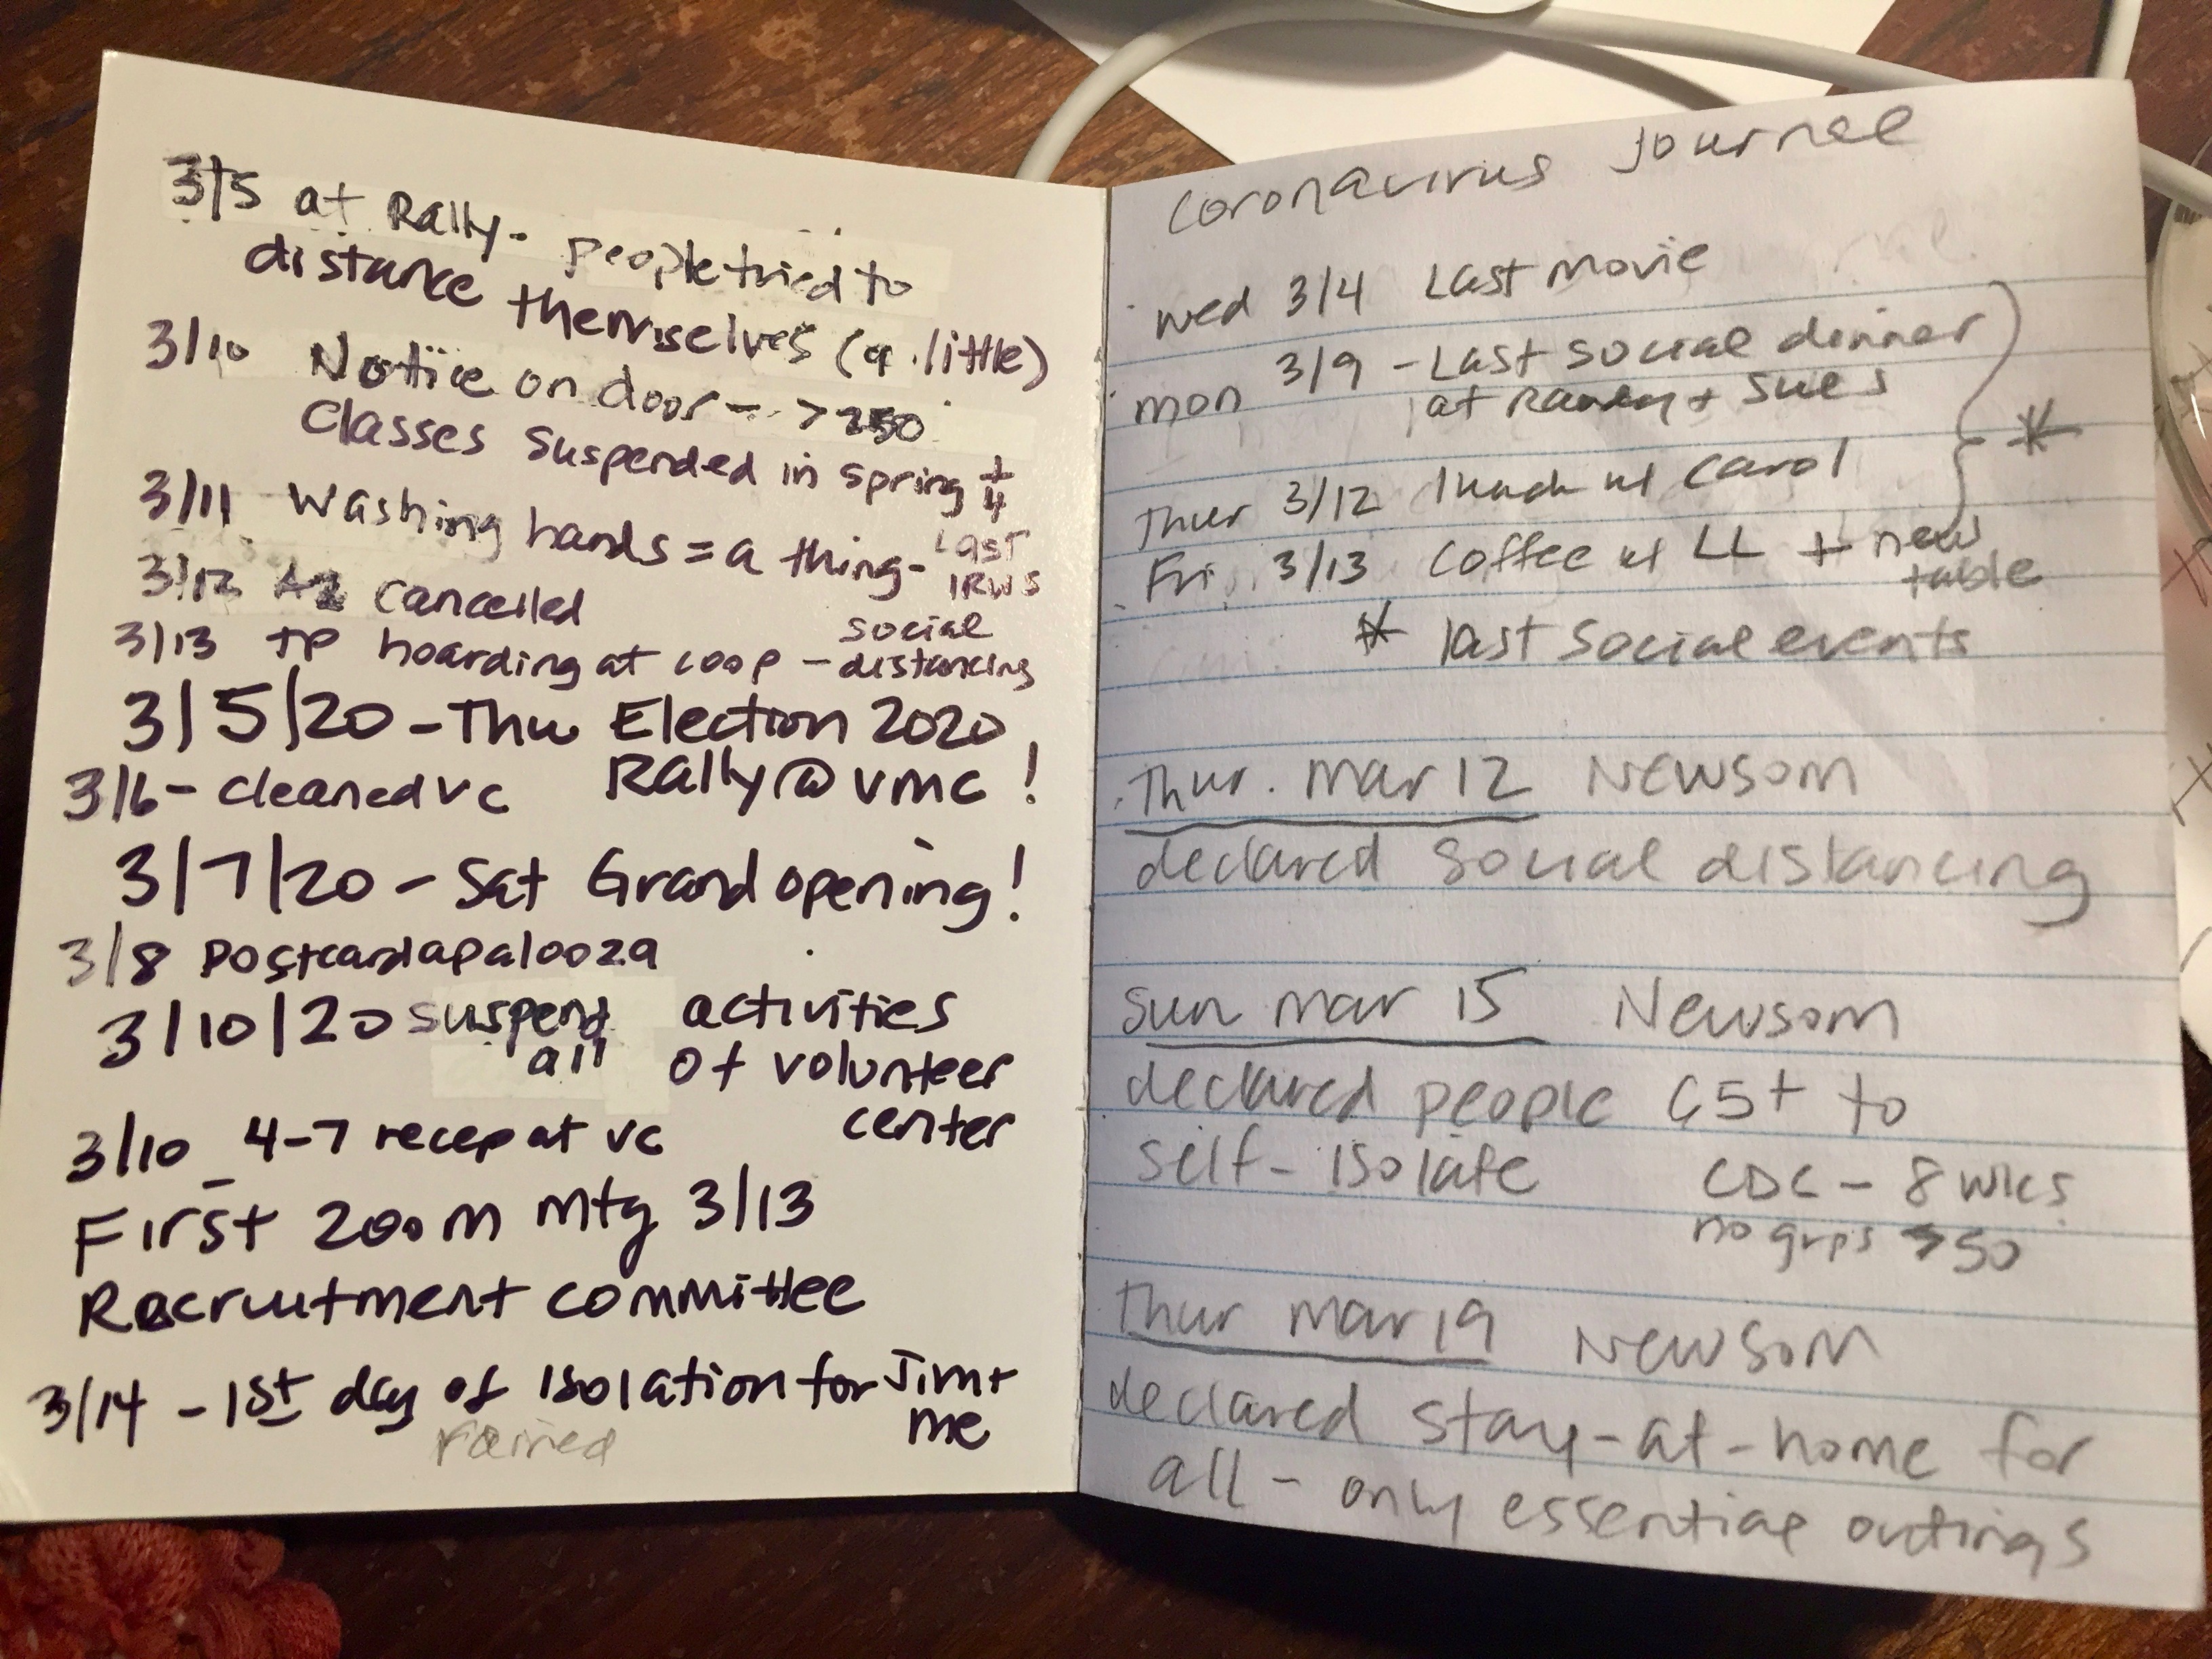 3/5 at Rally - people tried to
distance themselves (a little)
3/10 Notice on door - >250
Classes suspended in spring +
3/11 Washing hands = a thing - Last
IRWS
3/12 cancelled
3/13 TP hoarding at coop - social
distancing
3/5/20 - Thu Election 2020
Rally @ VMC !
3/6 - cleaned VC
3/7/20 - Sat Grand opening!
3/8 Postcardapalooza
3/10/20 suspend activities
all of volunteer
center
3/10 - 4-7 recep at VC
First zoom mtg 3/13
Recruitment committee
3/14 - 1st day of isolation for Jim +
me
rained
coronavirus journal
Wed 3/4 Last movie
Mon 3/9 - Last social dinner
at Randy + Sues
Thur 3/12 lunch w/ Carol
Fri 3/13 Coffee w/ LL + new
table
*
* last social events
Thur. Mar 12 Newsom
declared social distancing
Sun Mar 15 Newsom
declared people 65+ to
self-isolate CDC - 8 wks
no grps >50
Thur Mar 19 Newsom
declared stay-at-home for
all - only essential outings